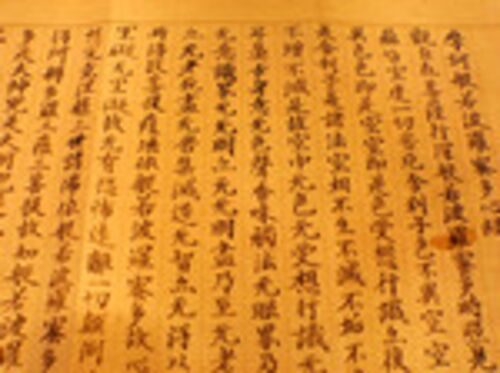 摩訶般若波羅蜜多心経
觀自在菩薩行深般若波羅蜜多時照見
蘊皆空度一切苦厄舍利子色不異空空
異色色即是空空即是色受想行識亦復
是舍利子是諸法空相不生不滅不垢不
不增不減是故空中无色无受想行識无
耳鼻舌身意无色聲香味觸法无眼界乃
无意識界无无明亦无无明盡乃至无老
亦无老死盡无苦集滅道无智亦无得以
所得故菩提薩埵依般若波羅蜜多故心
罣礙无罣礙故无有恐怖遠離一切顛倒
究竟涅槃三世諸佛依般若波羅蜜多
得阿耨多羅三藐三菩提故知般若波羅
多是大神咒是大明咒